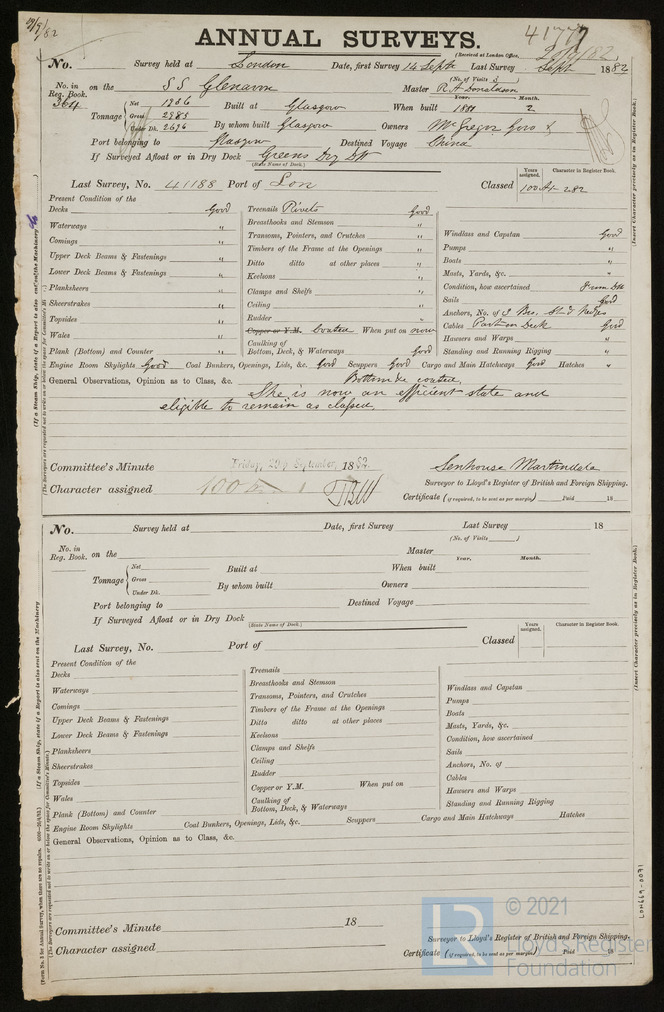 41777
ANNUAL SURVEYS.
(Received at London Office,
No. Survey held at London Date, first Survey 14 Septr Last Survey Sept 1882
(No. of Visits 3)
No. in Reg. Book. 364 on the SS Glenarm Master R A Donaldson
Tonnage Net 1906 Gross 2985 Under Dk. 2696 Built at Glasgow When built Year. Month. 2
By whom built Glasgow Owners McGregor Gow &
Port belonging to Glasgow Destined Voyage China
If Surveyed Afloat or in Dry Dock Greens Dry Dk
(State Name of Dock.)
Last Survey, No. 41188 Port of Lon Classed Years assigned. Character in Register Book. 100 A1 2.82
Present Condition of the
Decks Good
Waterways "
Comings "
Upper Deck Beams & Fastenings "
Lower Deck Beams & Fastenings "
Planksheers "
Sheerstrakes "
Topsides "
Wales "
Plank (Bottom) and Counter "
Treenails Rivets Good
Breasthooks and Stemson "
Transoms, Pointers, and Crutches "
Timbers of the Frame at the Openings "
Ditto ditto at other places "
Keelsons "
Clamps and Shelfs "
Ceiling "
Rudder "
Copper or Y.M. Coated When put on now
Caulking of Bottom, Deck, & Waterways Good
Windlass and Capstan Good
Pumps "
Boats "
Masts, Yards, &c. "
Condition, how ascertained From Dk
Sails Good
Anchors, No. of 3 Bro. St. & Kedges
Cables Part on Deck Good
Hawsers and Warps "
Standing and Running Rigging "
Engine Room Skylights Good Coal Bunkers, Openings, Lids, &c. Good Scuppers Good Cargo and Main Hatchways Good Hatches "
General Observations, Opinion as to Class, &c. Bottom &c coated,
She is now in an efficient state and
eligible to remain as classed.
Committee's Minute Friday, 29th September, 1882.
Character assigned 100 A 1
Senhouse Martindale
Surveyor to Lloyd's Register of British and Foreign Shipping.
Certificate (if required, to be sent as per margin) Paid 18
No. Survey held at Date, first Survey Last Survey 18
(No. of Visits )
No. in Reg. Book. on the Master
Tonnage Net Gross Under Dk. Built at When built Year. Month.
By whom built Owners
Port belonging to Destined Voyage
If Surveyed Afloat or in Dry Dock
(State Name of Dock.)
Last Survey, No. Port of Classed Years assigned. Character in Register Book.
Present Condition of the
Decks
Waterways
Comings
Upper Deck Beams & Fastenings
Lower Deck Beams & Fastenings
Planksheers
Sheerstrakes
Topsides
Wales
Plank (Bottom) and Counter
Treenails
Breasthooks and Stemson
Transoms, Pointers, and Crutches
Timbers of the Frame at the Openings
Ditto ditto at other places
Keelsons
Clamps and Shelfs
Ceiling
Rudder
Copper or Y.M. When put on
Caulking of Bottom, Deck, & Waterways
Windlass and Capstan
Pumps
Boats
Masts, Yards, &c.
Condition, how ascertained
Sails
Anchors, No. of
Cables
Hawsers and Warps
Standing and Running Rigging
Engine Room Skylights Coal Bunkers, Openings, Lids, &c. Scuppers Cargo and Main Hatchways Hatches
General Observations, Opinion as to Class, &c.
Committee's Minute 18
Character assigned
Surveyor to Lloyd's Register of British and Foreign Shipping.
Certificate (if required, to be sent as per margin) Paid 18
(Insert Character precisely as in Register Book.)
(Insert Character precisely as in Register Book.)
LON669-0091
LR © 2021
Lloyd's Register
Foundation